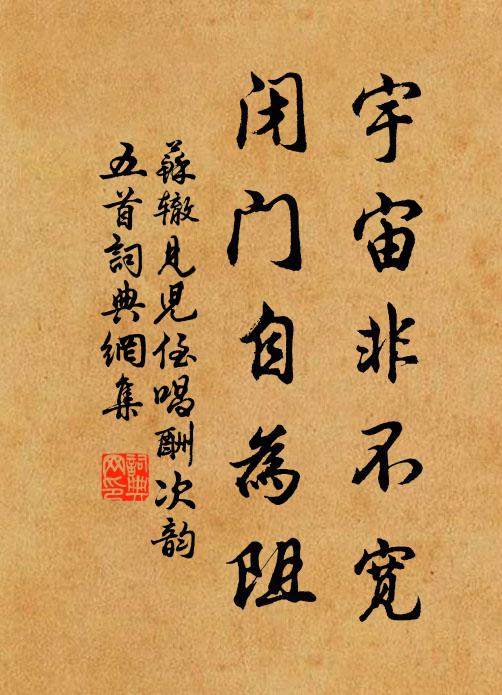 宇宙非不宽
闭门自為阻
蘇辙見児侄唱酬次韵
五首詞典網集
詞典
网印